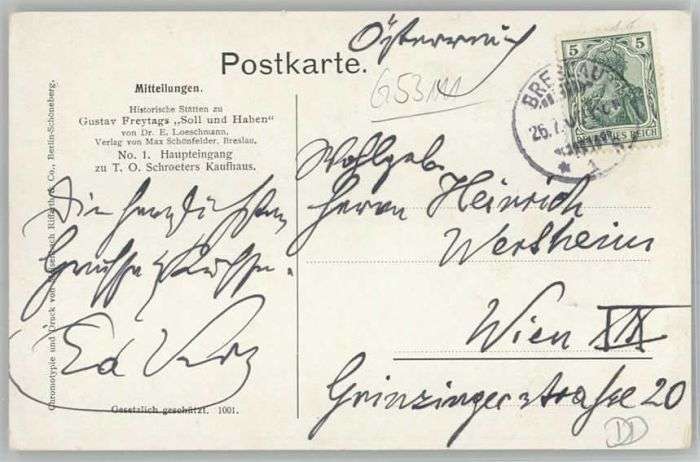 Österreich
Postkarte.
G53M
Mitteilungen.
Historische Stätten zu
Gustav Freytags „Soll und Haben"
von Dr. E. Loeschmann.
Verlag von Max Schönfelder, Breslau.
No. 1. Haupteingang
zu T. O. Schroeters Kaufhaus.
5 5
DEUTSCHES REICH
BRESLAU
26.7.
1
Wohlgeb.
Herrn Heinrich
Wertheim
Wien XIX
Grinzingerstraße 20
Die herzlichsten
Grüsse & Küsse.
Ed
Chromotypie und Druck von Riffarth & Co., Berlin-Schöneberg.
Gesetzlich geschützt. 1001.
DD